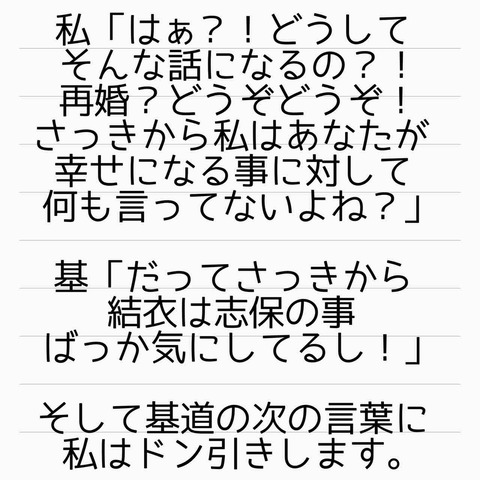 私「はぁ？！どうして
そんな話になるの？！
再婚？どうぞどうぞ！
さっきから私はあなたが
幸せになる事に対して
何も言ってないよね？」
基「だってさっきから
結衣は志保の事
ばっか気にしてるし！」
そして基道の次の言葉に
私はドン引きします。